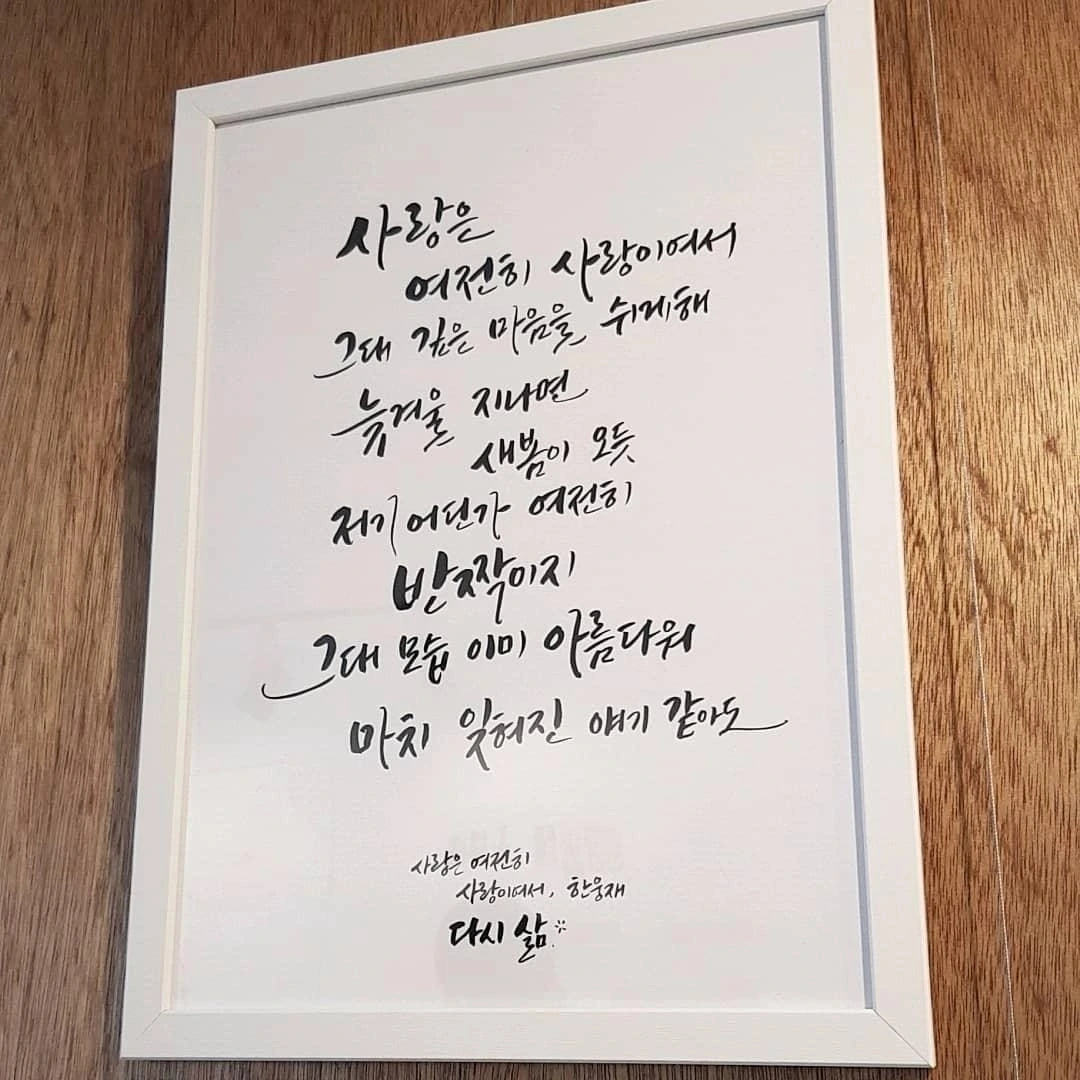 사랑은
여전히 사랑이여서
그대 깊은 마음을 쉬게해
늦겨울 지나면
새봄이 오듯
저기 어딘가 여전히
반짝이지
그대 모습 이미 아름다워
마치 잊혀진 얘기 같아도
사랑은 여전히
사랑이여서, 한웅재
다시 삶